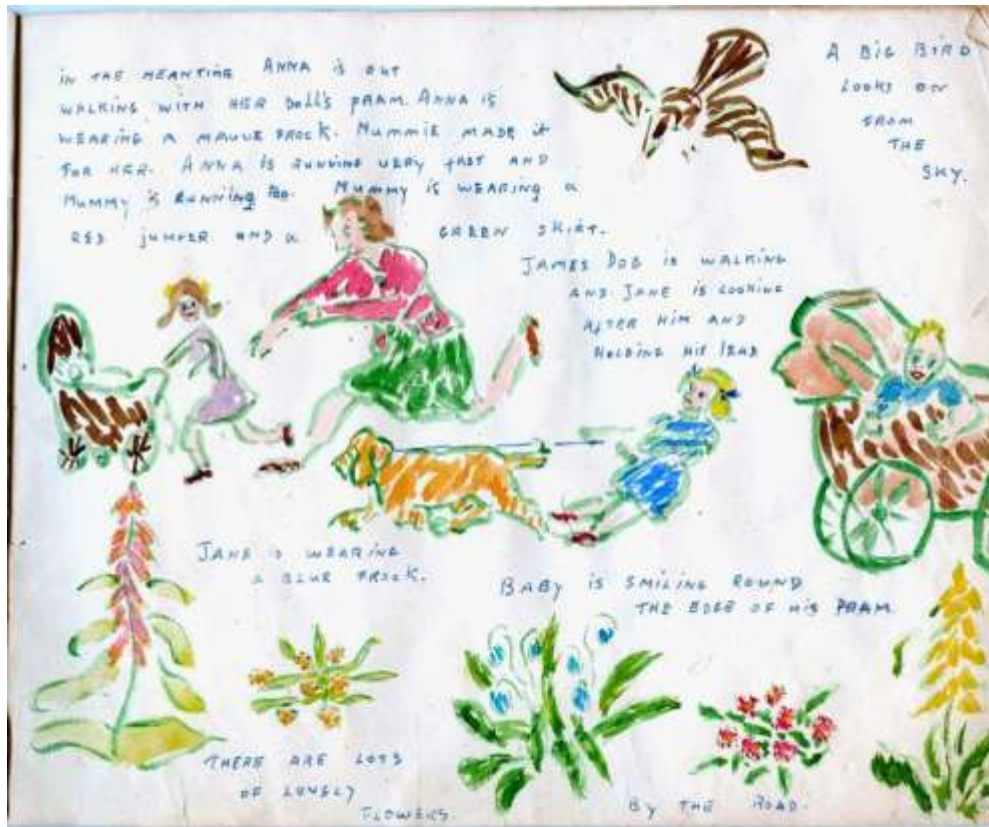 IN THE MEANTIME ANNA IS OUT
WALKING WITH HER DOLL'S PRAM. ANNA IS
WEARING A MAUVE FROCK. MUMMIE MADE IT
FOR HER. ANNA IS RUNNING VERY FAST AND
MUMMY IS RUNNING TOO. MUMMY IS WEARING A
RED JUMPER AND A GREEN SKIRT.
A BIG BIRD
LOOKS ON
FROM
THE
SKY.
JAMES DOG IS WALKING
AND JANE IS LOOKING
AFTER HIM AND
HOLDING HIS LEAD
JANE IS WEARING
A BLUE FROCK.
BABY IS SMILING ROUND
THE EDGE OF HIS PRAM
THERE ARE LOTS
OF LOVELY
FLOWERS
BY THE ROAD.